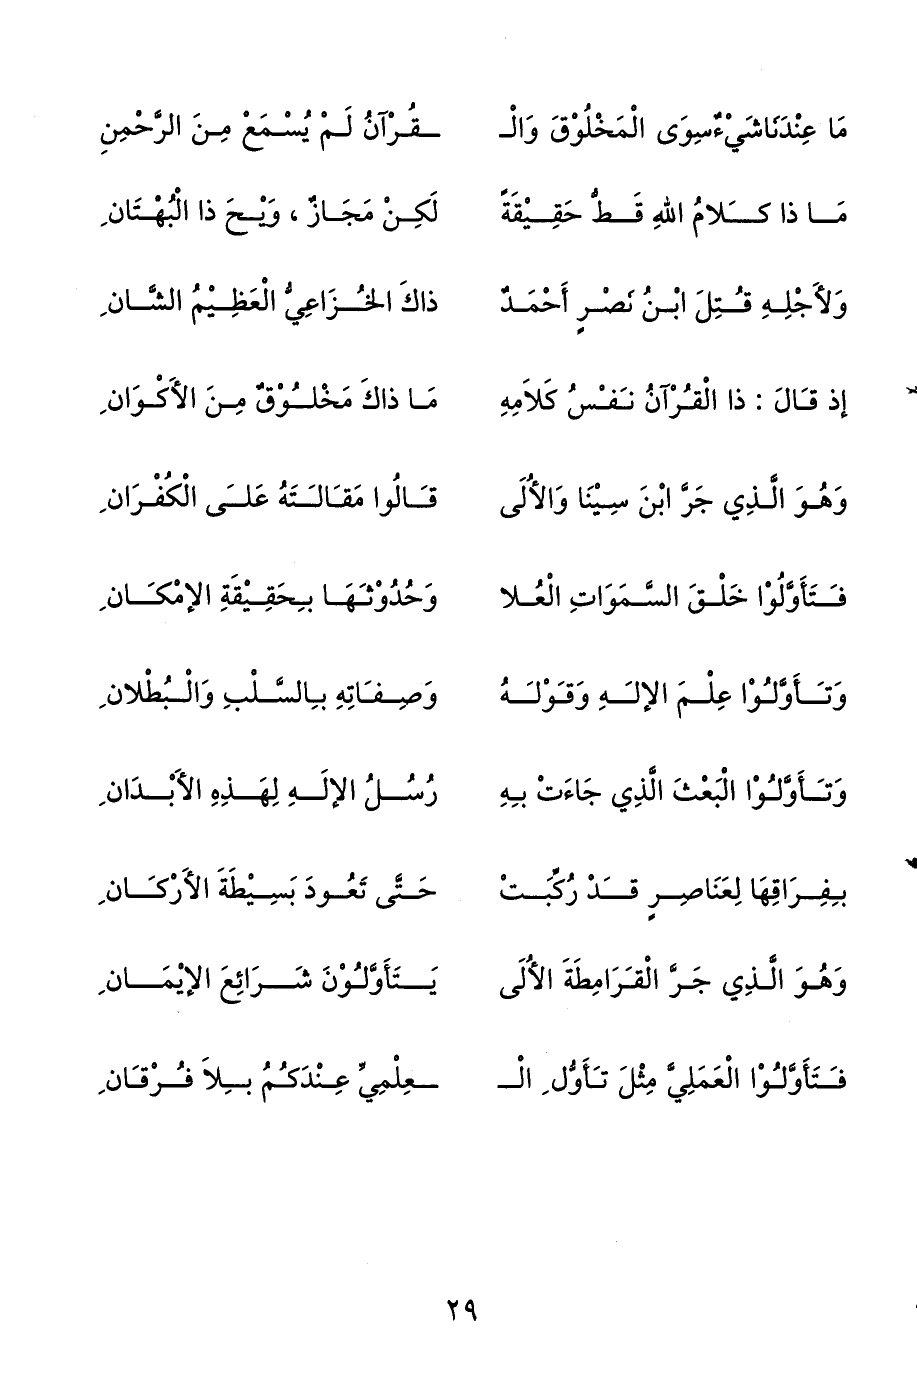 مَا عِنْدَنَا شَيْءٌ سِوَى الْمَخْلُوْقَ وَالْـ ـقُرْآنُ لَمْ يُسْمَعْ مِنَ الرَّحْمِنِ
مَا ذا كَلامُ اللهِ قَطُّ حَقِيْقَةً لَكِنْ مَجَازٌ ، وَيْحَ ذا الْبُهْتَانِ
وَلأَجْلِهِ قُتِلَ ابْنُ نَصْرٍ أَحْمَدٌ ذاكَ الخُزَاعِيُّ الْعَظِيْمُ الشَّانِ
إذ قَالَ : ذا الْقُرْآنُ نَفْسُ كَلاَمِهِ مَا ذاكَ مَخْلُوْقٌ مِنَ الأَكْوَانِ
وَهُوَ الَّذِي جَرَّ ابْنَ سِيْنَا وَالأُلَى قَالُوا مَقَالَتَهُ عَلَى الْكُفْرَانِ
فَتَأَوَّلُوْا خَلْقَ السَّمَوَاتِ الْعُلا وَحُدُوْثَهَا بِحَقِيْقَةِ الإمْكَانِ
وَتَأَوَّلُوْا عِلْمَ الإلَهِ وَقَوْلَهُ وَصِفَاتِهِ بِالسَّلْبِ وَالْبُطْلانِ
وَتَأَوَّلُوْا الْبَعْثَ الَّذِي جَاءَتْ بِهِ رُسُلُ الإلَهِ لِهَذِهِ الأَبْدَانِ
بِفِرَاقِهَا لِعَنَاصِرٍ قَدْ رُكِّبَتْ حَتَّى تَعُودَ بَسِيْطَةَ الأَرْكَانِ
وَهُوَ الَّذِي جَرَّ الْقَرَامِطَةَ الأُلَى يَتَأَوَّلُوْنَ شَرَائِعَ الإيْمَانِ
فَتَأَوَّلُوْا الْعَمَلِيَّ مِثْلَ تَأَوُّلِ الْـ ـعِلْمِيِّ عِنْدَكُمُ بِلاَ فُرْقَانِ
٢٩